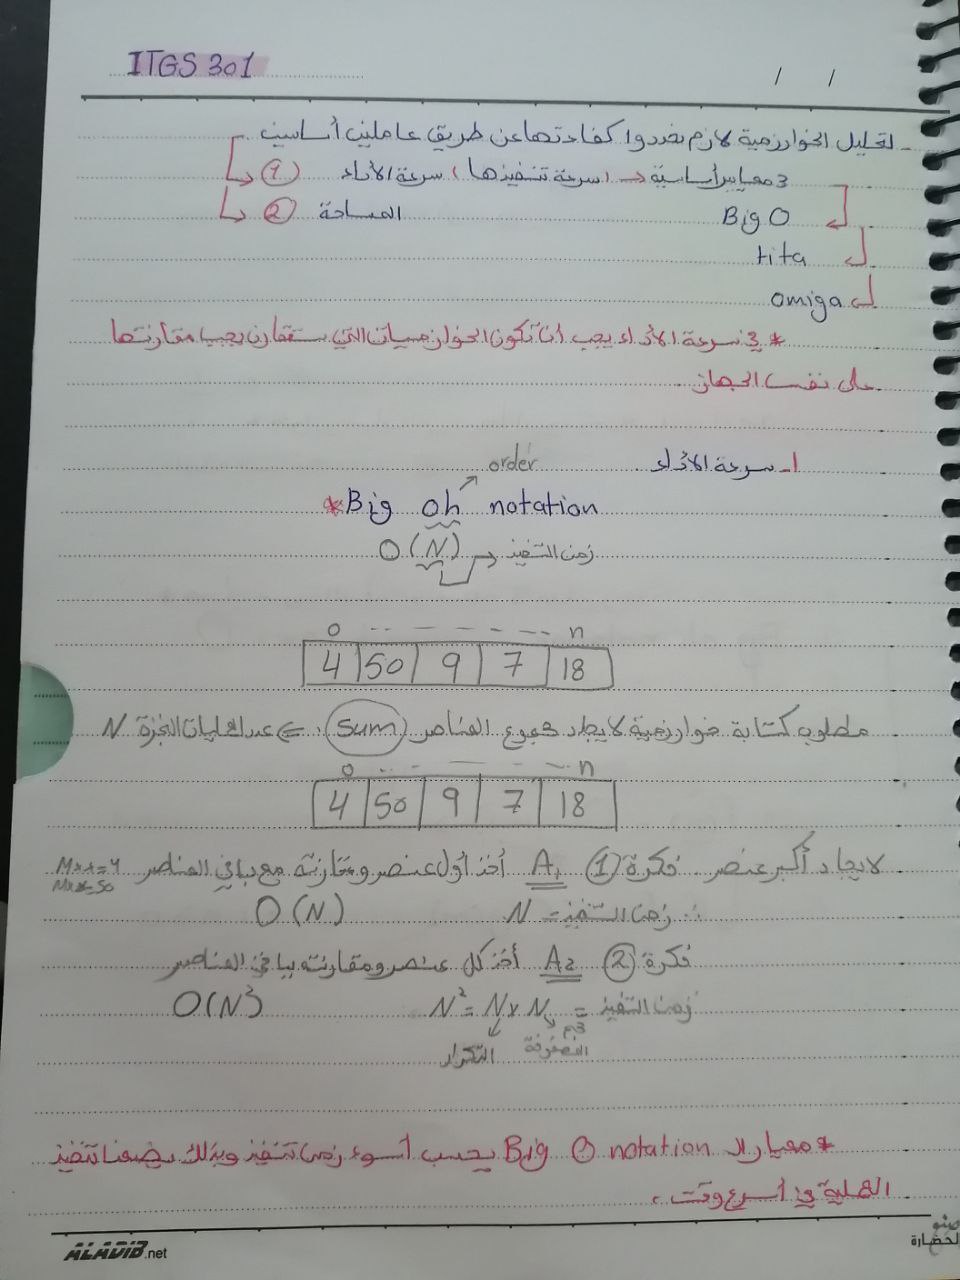 ITGS 301
/ /
- لتحليل الخوارزمية لازم نحددوا كفاءتها عن طريق عاملين أساسين
① سرعة الأداء (سرعة تنفيذها) → 3 معايير أساسية
② المساحة
Big O
tita
omiga
* في سرعة الأداء يجب أن تكون الخوارزميات التي ستقارن يجب مقارنتها
على نفس الجهاز
1- سرعة الأداء
order
* Big oh notation
O(N) → زمن التنفيذ
0 n
4 50 9 7 18
مطلوب كتابة خوارزمية لايجاد مجموع العناصر (sum) . ⇐ عدد العمليات المنجزة N
0 n
4 50 9 7 18
لايجاد أكبر عنصر فكرة ① A₁ أخذ أول عنصر ومقارنته مع باقي العناصر Max=4
Max=50
∴ زمن التنفيذ = N O(N)
فكرة ② A₂ أخذ كل عنصر ومقارنته بباقي العناصر
زمن التنفيذ = N² = N x N O(N²)
حجم
المصفوفة التكرار
* معيار الـ Big O notation يحسب أسوء زمن تنفيذ وبذلك يضمنا تنفيذ
العملية في أسرع وقت .
ALADIB.net
الحضارة